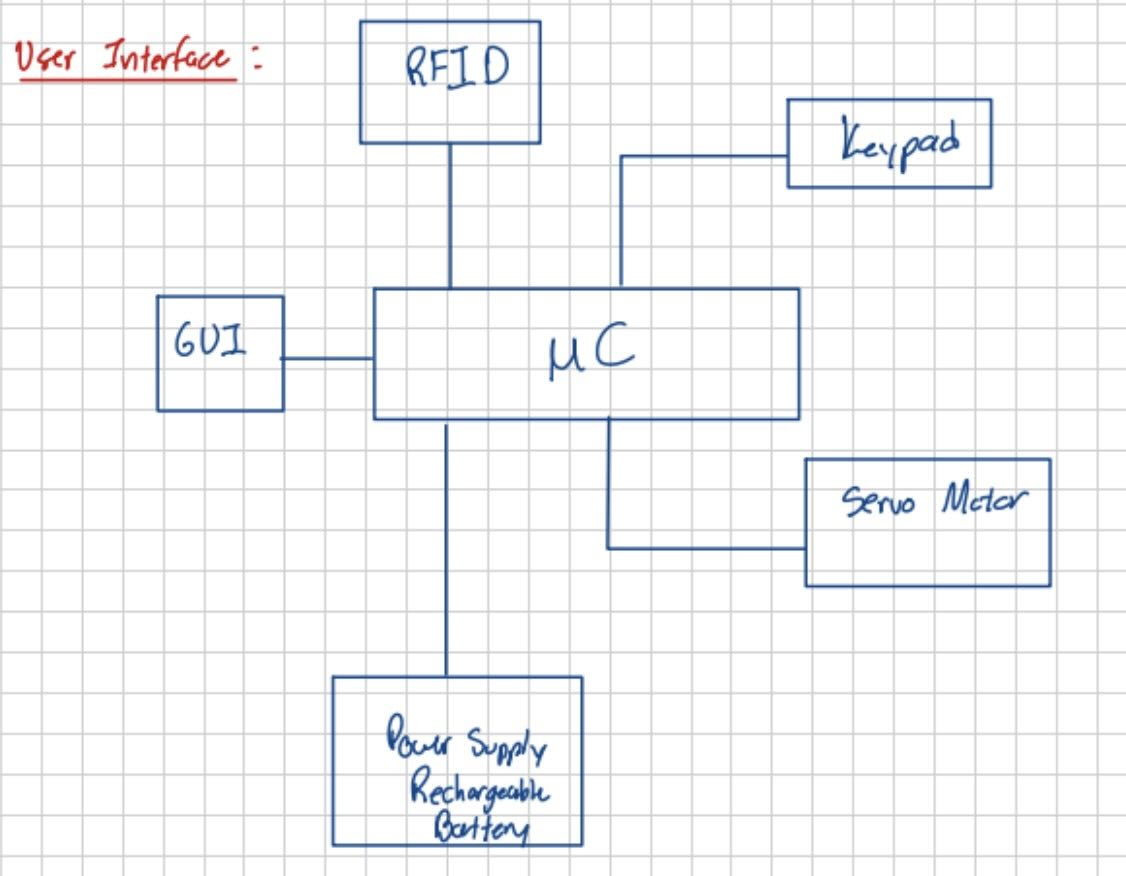 User Interface :
RFID
Keypad
GUI
μC
Servo Motor
Power Supply
Rechargeable
Battery